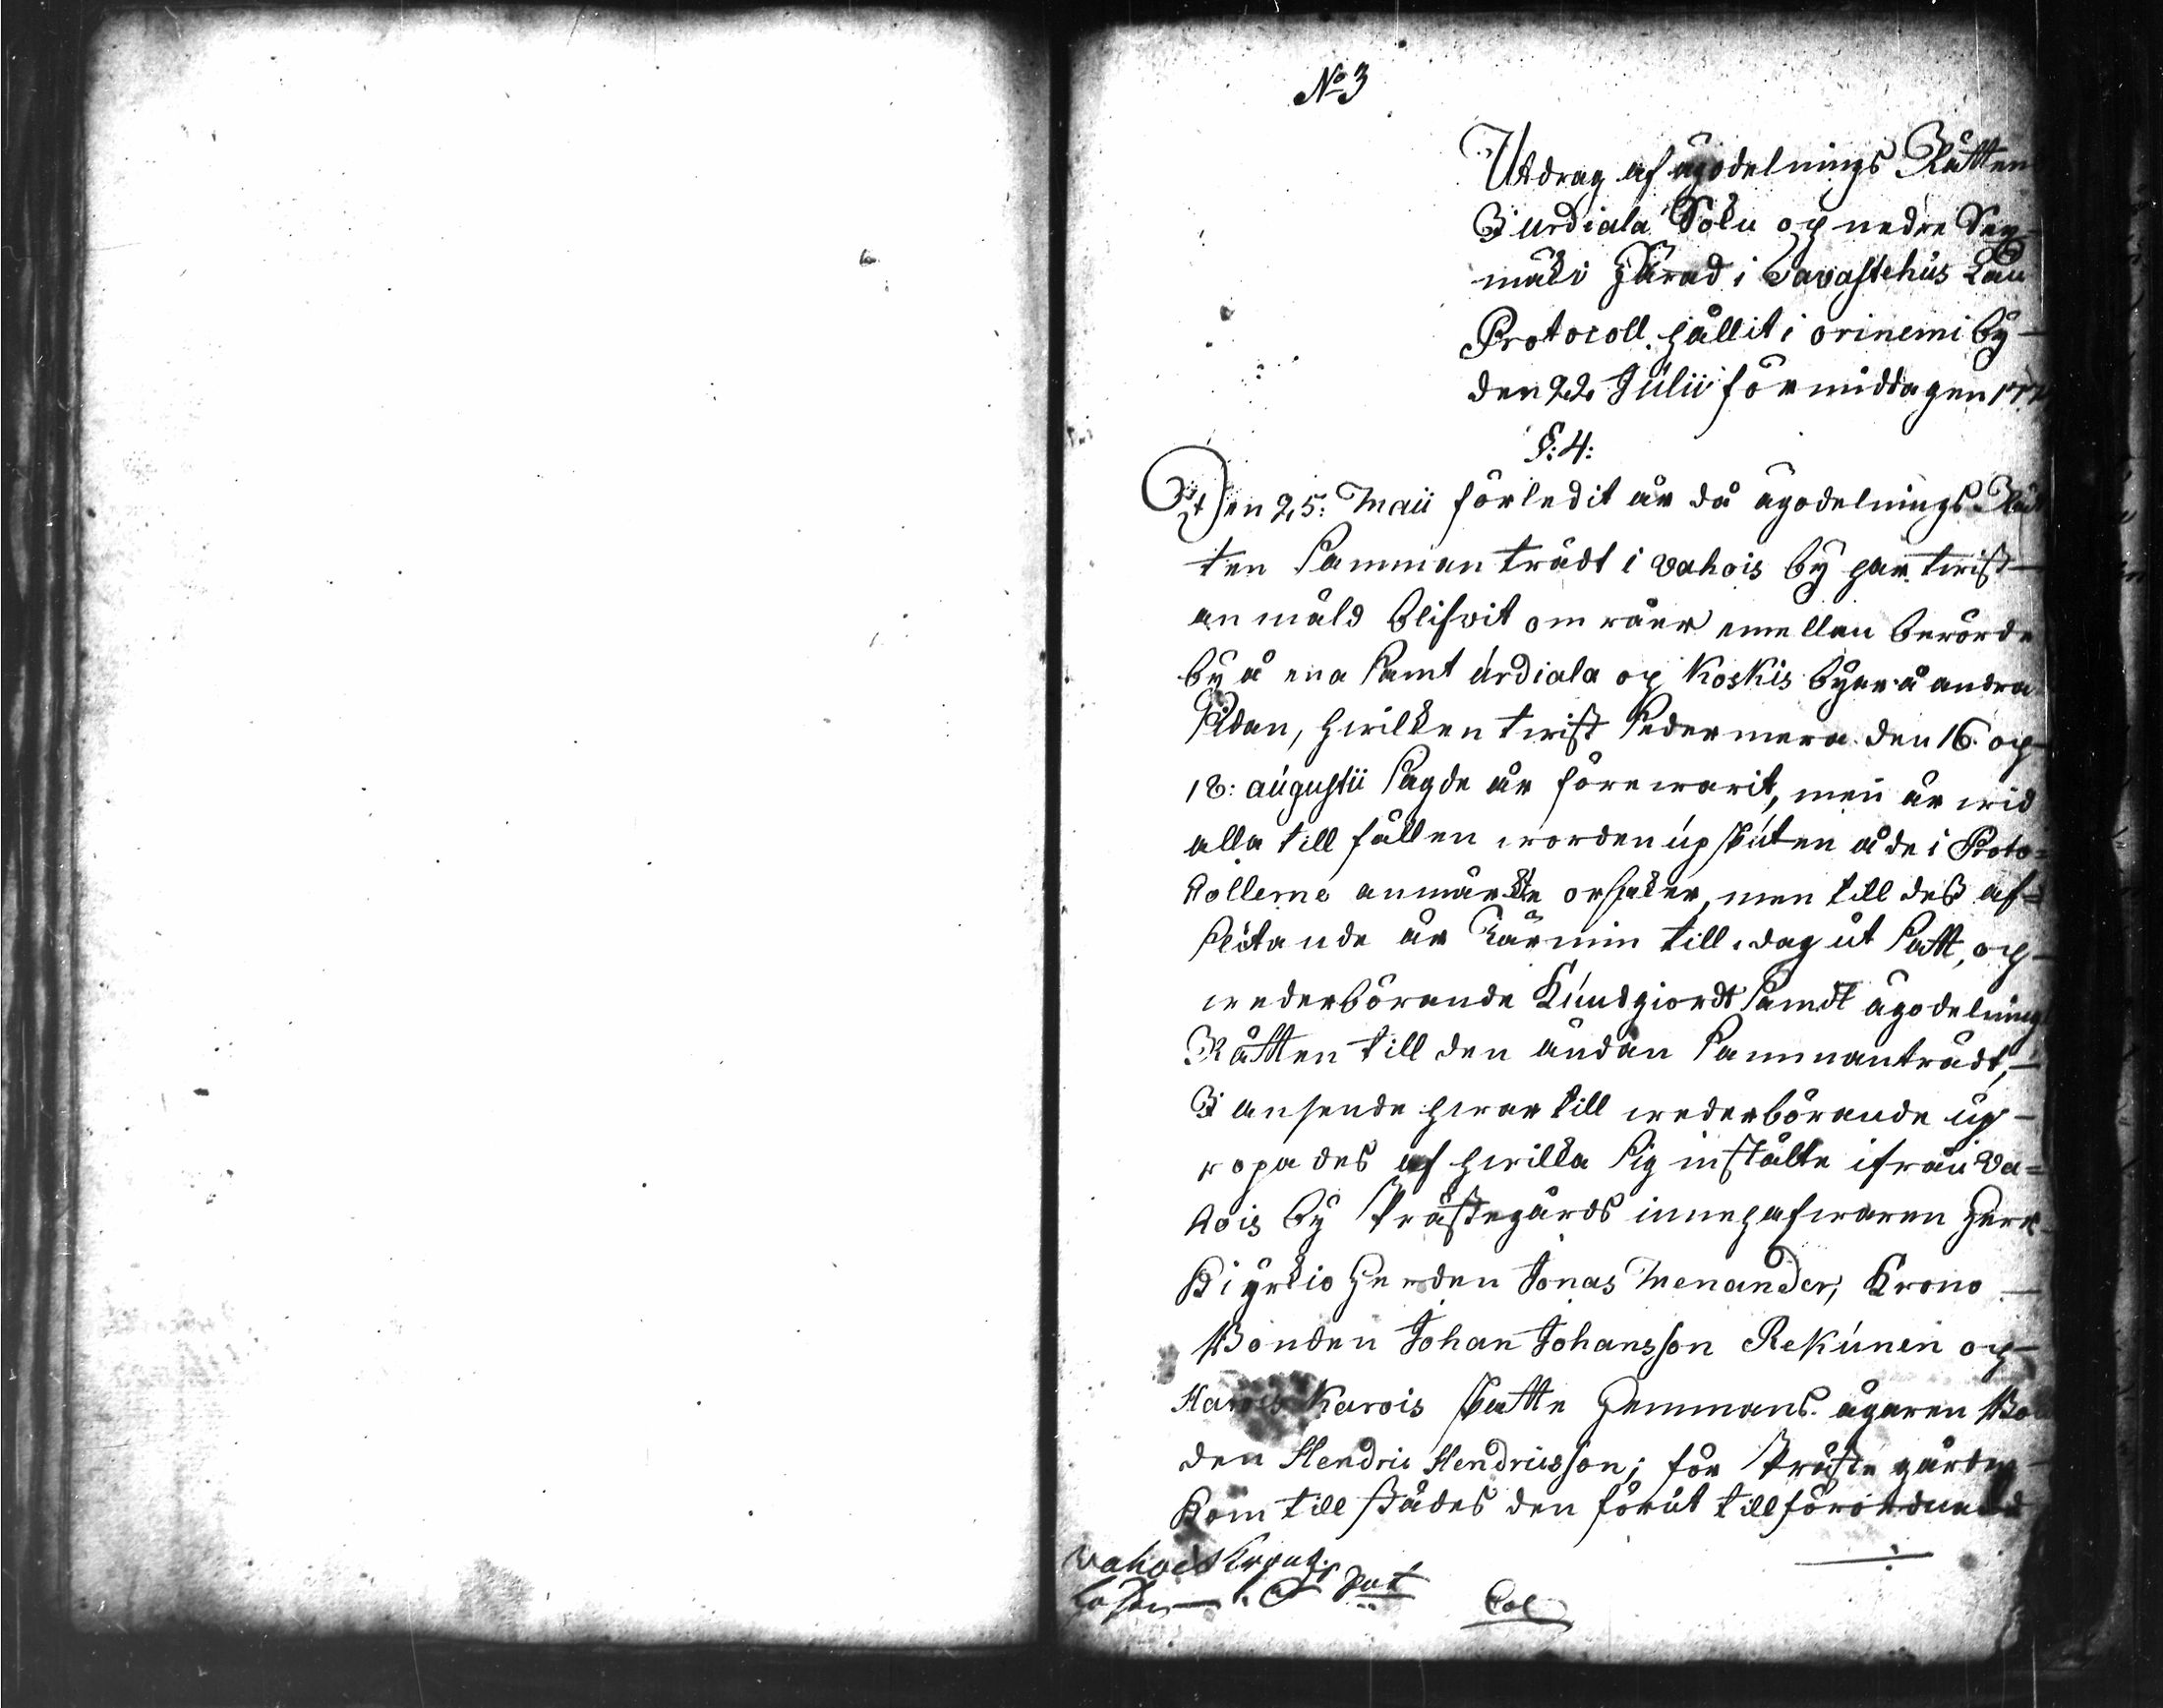 No 3
Utdrag af ägodelnings Rätten
I urdiala Sokn och nedre Sax-
mäki Härad i Tavastehus Län
Protocoll hållit i orinemi by
den 22 Julii förmiddagen 177
§: 4:
Den 25: Maii förledit år då ägodelnings Rät
ten Sammanträdt i vahois by har twist
anmäld blifvit om råer emellan berörde
by å ena samt urdiala och Koskis byar å andra
sidan, hwilken twist sedermera den 16 och
18: augustii sagde år förewarit, men är wid
alla tillfällen worden upskuten å de i Proto=
collerne anmärkte orsaker, men till dess af=
slutande är Tärmin till i dag utsatt, och
wederbörande Kundgiordt samdt ägodelnings
Rätten till den ändan Sammanträdt,
I anseende hwartill wederbörande up-
ropades af hwilka sig instälte ifrån Va=
hois by Prästegårds innehafwaren Herr
Kiyrkio Herden Jonas Menander, Krono
Bonden Johan Johansson Rekunen och
Karois skatte Hemmans ägaren Bon
den Hendric Hendricsson; för Prästegården
Kom tillstädes den förut tillförordnade
vahois
Col